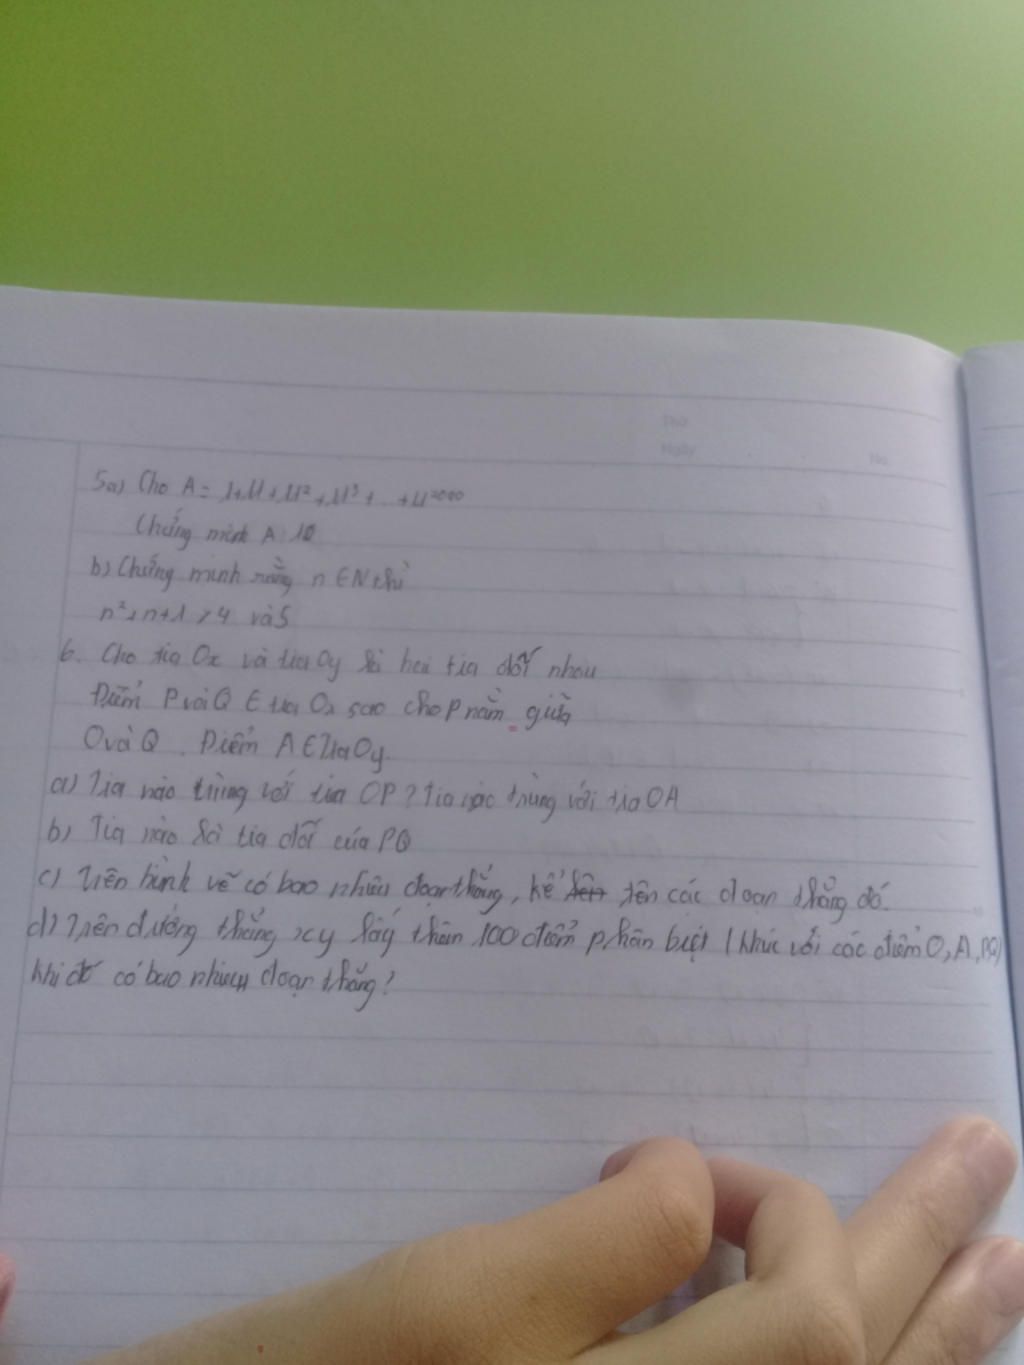 Thứ
Ngày
No.
5a) Cho A = 1+4+4²+4³+...+4²⁰⁰⁰
Chứng minh A
b) Chứng minh rằng n ∈ N thì
n²+n+1 4 và 5
6. Cho tia Ox và tia Oy là hai tia đối nhau
Điểm P và Q ∈ tia Ox sao cho P nằm giữa
O và Q. Điểm A ∈ Tia Oy.
a) Tia nào trùng với tia OP? Tia nào trùng với tia OA
b) Tia nào là tia đối của PQ
c) Trên hình vẽ có bao nhiêu đoạn thẳng, kể tên các đoạn thẳng đó.
d) Trên đường thẳng xy lấy thêm 100 điểm phân biệt (khác với các điểm O, A, P, Q)
Khi đó có bao nhiêu đoạn thẳng?